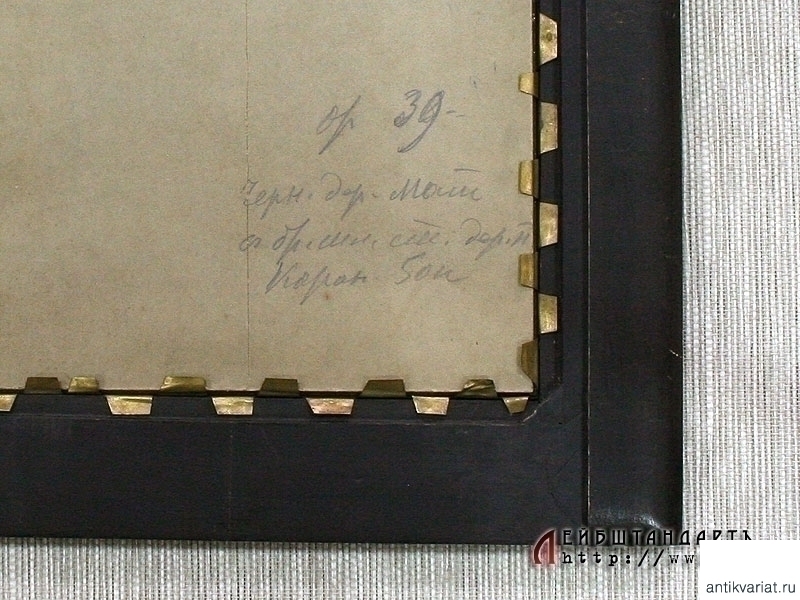 ор 39-
Черн. дер. Мат
с бр. ин. ст. дер. п
Корон 5 ок
ЛЕЙБШТАНДАРТЪ
http://ww
antikvariat.ru